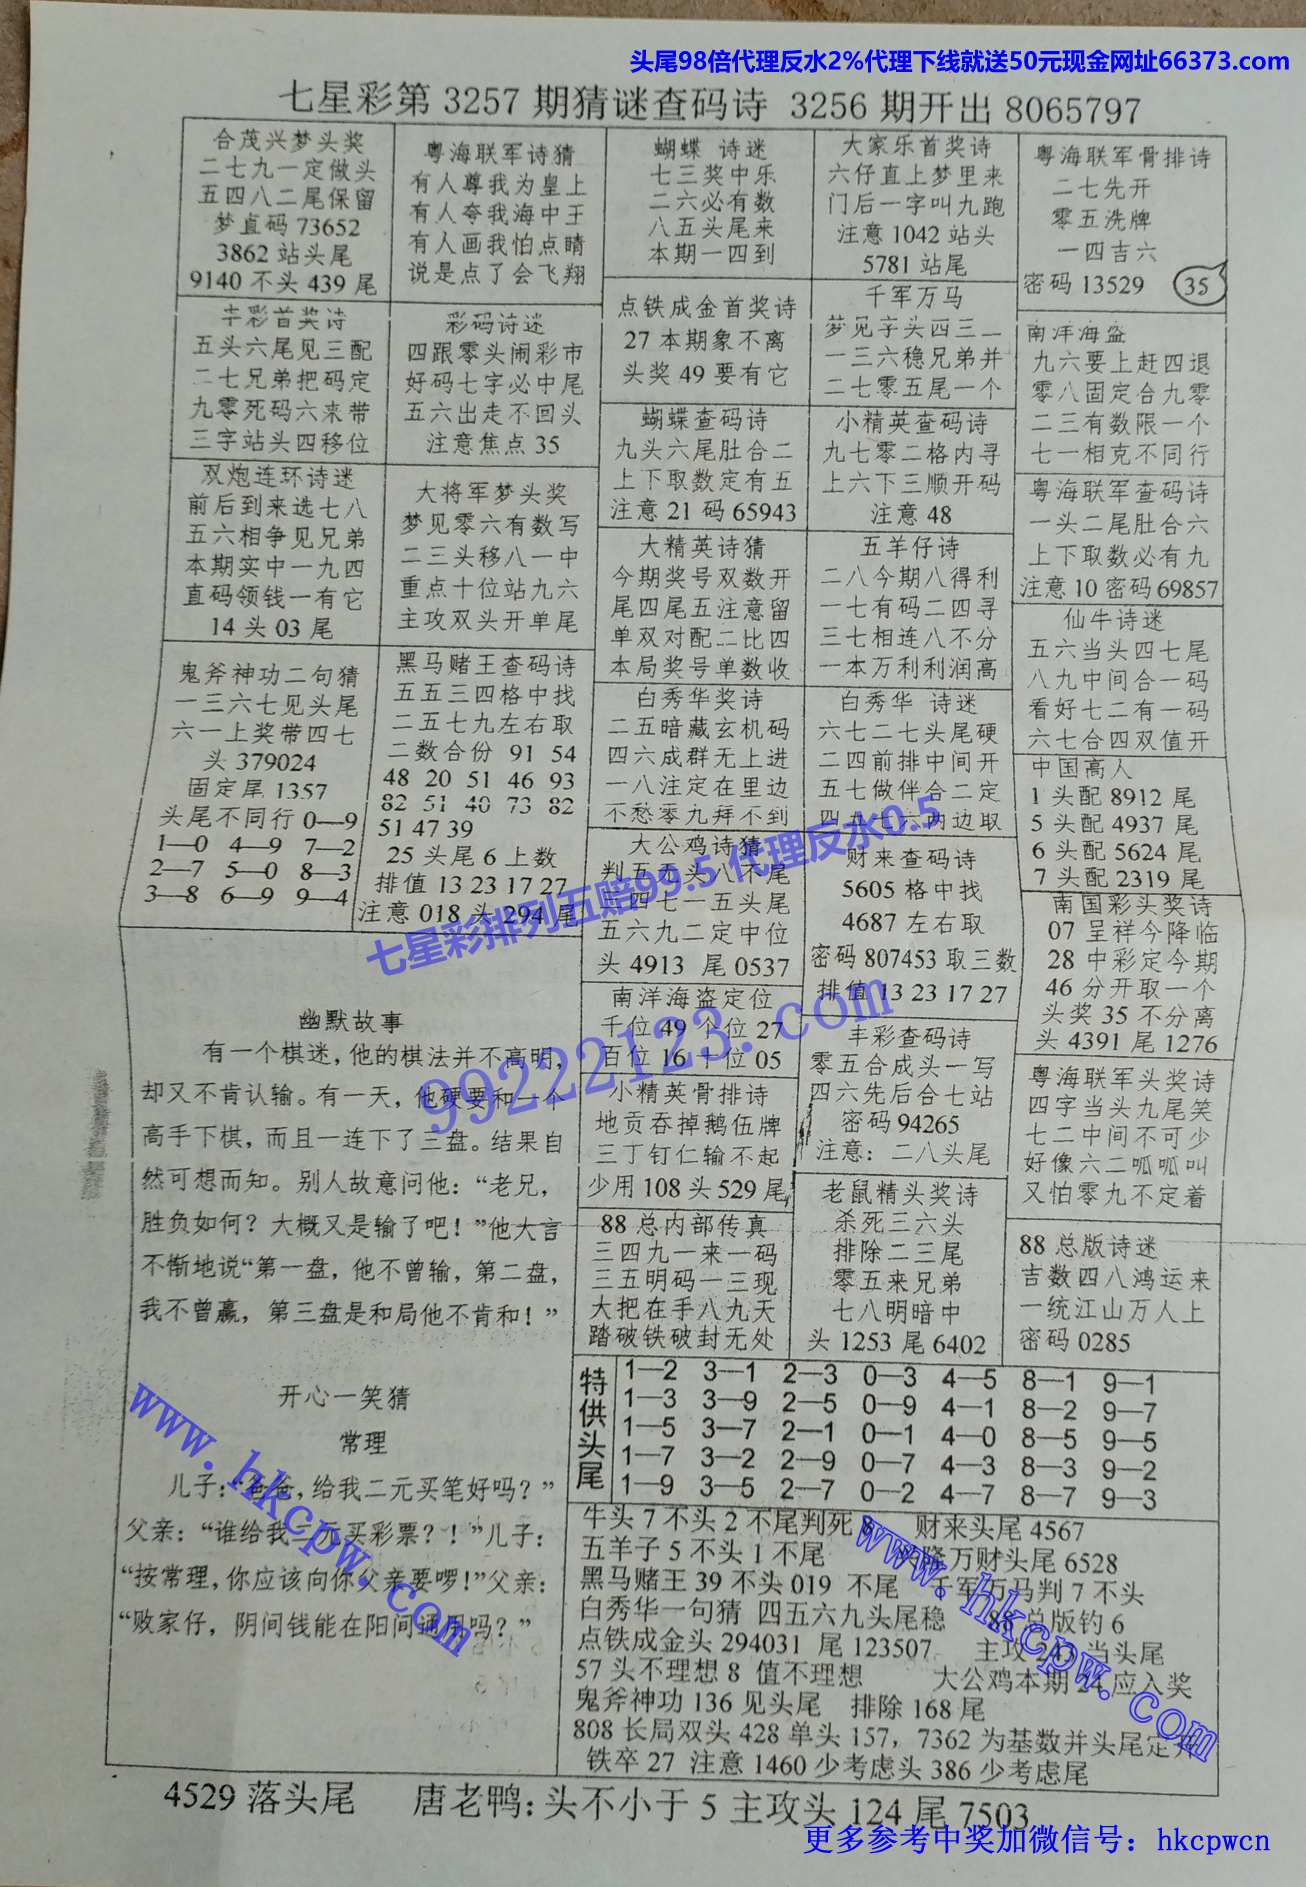 头尾98倍代理反水2%代理下线就送50元现金网址66373.com
七星彩第 3257 期猜谜查码诗 3256 期开出 8065797
合茂兴梦头奖
二七九一定做头
五四八二尾保留
梦直码 73652
3862 站头尾
9140 不头 439 尾
粤海联军诗猜
有人尊我为皇上
有人夸我海中王
有人画我怕点睛
说是点了会飞翔
蝴蝶 诗迷
七三奖中乐
二六必有数
八五头尾来
本期一四到
大家乐首奖诗
六仔直上梦里来
门后一字叫九跑
注意 1042 站头
5781 站尾
粤海联军骨排诗
二七先开
零五洗牌
一四吉六
密码 13529 35
丰彩首奖诗
五头六尾见三配
二七兄弟把码定
九零死码六来带
三字站头四移位
彩码诗迷
四跟零头闹彩市
好码七字必中尾
五六出走不回头
注意焦点 35
点铁成金首奖诗
27 本期象不离
头奖 49 要有它
千军万马
梦见字头西三二
一三六稳兄弟并
二七零五尾一个
南洋海盗
九六要上赶四退
零八固定合九零
二三有数限一个
七一相克不同行
蝴蝶查码诗
九头六尾肚合二
上下取数定有五
注意 21 码 65943
小精英查码诗
九七零二格内寻
上六下三顺开码
注意 48
双炮连环诗迷
前后到来选七八
五六相争见兄弟
本期实中一九四
直码领钱一有它
14 头 03 尾
大将军梦头奖
梦见零六有数写
二三头移八一中
重点十位站九六
主攻双头开单尾
粤海联军查码诗
一头二尾肚合六
上下取数必有九
注意 10 密码 69857
大精英诗猜
今期奖号双数开
尾四尾五注意留
单双对配二比四
本局奖号单数收
五羊仔诗
二八今期八得利
一七有码二四寻
三七相连八不分
一本万利利润高
仙牛诗迷
五六当头四七尾
八九中间合一码
看好七二有一码
六七合四双值开
鬼斧神功二句猜
一三六七见头尾
六一上奖带四七
头 379024
固定尾 1357
头尾不同行 0—9
1—0 4—9 7—2
2—7 5—0 8—3
3—8 6—9 9—4
黑马赌王查码诗
五五三四格中找
二五七九左右取
二数合份 91 54
48 20 51 46 93
82 51 40 73 82
51 47 39
25 头尾 6 上数
排值 13 23 17 27
注意 018 头 294 尾
白秀华奖诗
二五暗藏玄机码
四六成群无上进
一八注定在里边
不愁零九拜不到
白秀华 诗迷
六七二七头尾硬
二四前排中间开
五七做伴合二定
四五七六两边取
中国高人
1 头配 8912 尾
5 头配 4937 尾
6 头配 5624 尾
7 头配 2319 尾
大公鸡诗猜
判五无头八不尾
三四七一五头尾
五六九二定中位
头 4913 尾 0537
财来查码诗
5605 格中找
4687 左右取
密码 807453 取三数
排值 13 23 17 27
南国彩头奖诗
07 呈祥今降临
28 中彩定今期
46 分开取一个
头奖 35 不分离
头 4391 尾 1276
七星彩排列五赔99.5 代理反水0.5
99222123.com
南洋海盗定位
千位 49 个位 27
百位 16 十位 05
丰彩查码诗
零五合成头一写
四六先后合七站
密码 94265
注意：二八头尾
粤海联军头奖诗
四字当头九尾笑
七二中间不可少
好像六二呱呱叫
又怕零九不定着
小精英骨排诗
地贡吞掉鹅伍牌
三丁钉仁输不起
少用 108 头 529 尾
88 总内部传真
三四九一来一码
三五明码一三现
大把在手八九天
踏破铁破封无处
老鼠精头奖诗
杀死三六头
排除二三尾
零五来兄弟
七八明暗中
头 1253 尾 6402
88 总版诗迷
吉数四八鸿运来
一统江山万人上
密码 0285
幽默故事
有一个棋迷，他的棋法并不高明，
却又不肯认输。有一天，他硬要和一个
高手下棋，而且一连下了三盘。结果自
然可想而知。别人故意问他：“老兄，
胜负如何？大概又是输了吧！”他大言
不惭地说“第一盘，他不曾输，第二盘，
我不曾赢，第三盘是和局他不肯和！”
开心一笑猜
常理
儿子：“爸爸，给我二元买笔好吗？”
父亲：“谁给我二元买彩票？！”儿子：
“按常理，你应该向你父亲要啰！”父亲：
“败家仔，阴间钱能在阳间通用吗？”
www.hkcpw.com
特供头尾
1—2 3—1 2—3 0—3 4—5 8—1 9—1
1—3 3—9 2—5 0—9 4—1 8—2 9—7
1—5 3—7 2—1 0—1 4—0 8—5 9—5
1—7 3—2 2—9 0—7 4—3 8—3 9—2
1—9 3—5 2—7 0—2 4—7 8—7 9—3
牛头 7 不头 2 不尾判死 8 财来头尾 4567
五羊子 5 不头 1 不尾 隆万财头尾 6528
黑马赌王 39 不头 019 不尾 千军万马判 7 不头
白秀华一句猜 四五六九头尾稳 88 总版钓 6
点铁成金头 294031 尾 123507 主攻 243 当头尾
57 头不理想 8 值不理想 大公鸡本期 24 应入奖
鬼斧神功 136 见头尾 排除 168 尾
808 长局双头 428 单头 157，7362 为基数并头尾定开
铁卒 27 注意 1460 少考虑头 386 少考虑尾
www.hkcpw.com
4529 落头尾 唐老鸭：头不小于 5 主攻头 124 尾 7503
更多参考中奖加微信号：hkcpwcn